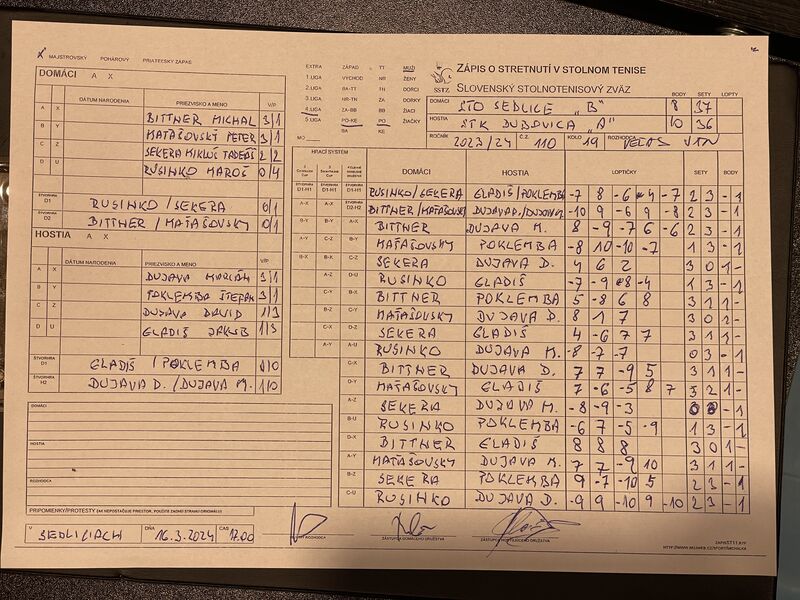 X MAJSTROVSKÝ POHÁROVÝ PRIATEĽSKÝ ZÁPAS
DOMÁCI A X
DÁTUM NARODENIA PRIEZVISKO A MENO V/P
A X BITTNER MICHAL 3/1
B Y MATAŠOVSKÝ PETER 3/1
C Z SEKERA MIKLUŠ TADEÁŠ 2/2
D U RUSINKO MAROŠ 0/4
ŠTVORHRA D1 RUSINKO / SEKERA 0/1
ŠTVORHRA D2 BITTNER / MATAŠOVSKY 0/1
HOSTIA A X
DÁTUM NARODENIA PRIEZVISKO A MENO V/P
A X DUJAVA MARIÁN 3/1
B Y POKLEMBA ŠTEFAN 3/1
C Z DUJAVA DAVID 1/3
D U GLADIŠ JAKUB 1/3
ŠTVORHRA D1 GLADIŠ / POKLEMBA 1/0
ŠTVORHRA H2 DUJAVA D. / DUJAVA M. 1/0
DOMÁCI
HOSTIA
ROZHODCA
PRIPOMIENKY/PROTESTY (AK NEPOSTAČUJE PRIESTOR, POUŽITE ZADNÚ STRANU ORIGINÁLU)
V SEDLICIACH DŇA 16.3.2024 ČAS 17.00
EXTRA ZÁPAD TT MUŽI
1.LIGA VÝCHOD NR ŽENY
2.LIGA BA-TT TN DORCI
3.LIGA NR-TK ZA DORKY
4.LIGA ZA-BB BB ŽIACI
5.LIGA PO-KE PO ŽIAČKY
BA KE
MO
ZÁPIS O STRETNUTÍ V STOLNOM TENISE
SSTZ SLOVENSKÝ STOLNOTENISOVÝ ZVÄZ
BODY SETY LOPTY
DOMÁCI STO SEDLICE „B" 8 37
HOSTIA STK DUBOVICA „A" 10 36
ROČNÍK 2023/24 Č.Z. 110 KOLO 19 ROZHODCA
HRACÍ SYSTÉM
DOMÁCI HOSTIA LOPTIČKY SETY BODY
ŠTVORHRA D1-H1 ŠTVORHRA D1-H1 ŠTVORHRA D1-H1 RUSINKO/SEKERA GLADIŠ/POKLEMBA -7 8 -6 4 -7 2 3 - 1
A-X A-X ŠTVORHRA D2-H2 BITTNER/MATAŠOVSKY -10 9 -6 9 -8 2 3 - 1
B-Y B-Y A-X BITTNER DUJAVA M. 8 -9 -7 6 -6 2 3 - 1
A-Y C-Z B-Y MATAŠOVSKY POKLEMBA -8 10 -10 -7 1 3 - 1
B-X B-X C-Z SEKERA DUJAVA D. 4 6 2 3 0 1 -
A-Z D-U RUSINKO GLADIŠ -7 -9 8 -4 1 3 - 1
C-Y B-X BITTNER POKLEMBA 5 -8 6 8 3 1 1 -
B-Z C-Y MATAŠOVSKY DUJAVA D. 8 1 7 3 0 1 -
C-X D-Z SEKERA GLADIŠ 4 -6 7 7 3 1 1 -
A-Y A-U RUSINKO DUJAVA M. -8 -7 -7 0 3 - 1
C-X BITTNER DUJAVA D. 7 7 -9 5 3 1 1 -
D-Y MATAŠOVSKY GLADIŠ 7 -6 -5 8 7 3 2 1 -
A-Z SEKERA DUJAVA M. -8 -9 -3 0 3 - 1
B-U RUSINKO POKLEMBA -6 7 -5 -9 1 3 - 1
D-X BITTNER GLADIŠ 8 8 8 3 0 1 -
A-Y MATAŠOVSKY DUJAVA M. 7 7 -9 10 3 1 1 -
B-Z SEKERA POKLEMBA 9 -7 -10 5 2 3 - 1
C-U RUSINKO DUJAVA D. -9 9 10 9 -10 2 3 - 1
ZÁSTUPCA DOMÁCEHO DRUŽSTVA
ZÁSTUPCA HOSŤUJÚCEHO DRUŽSTVA